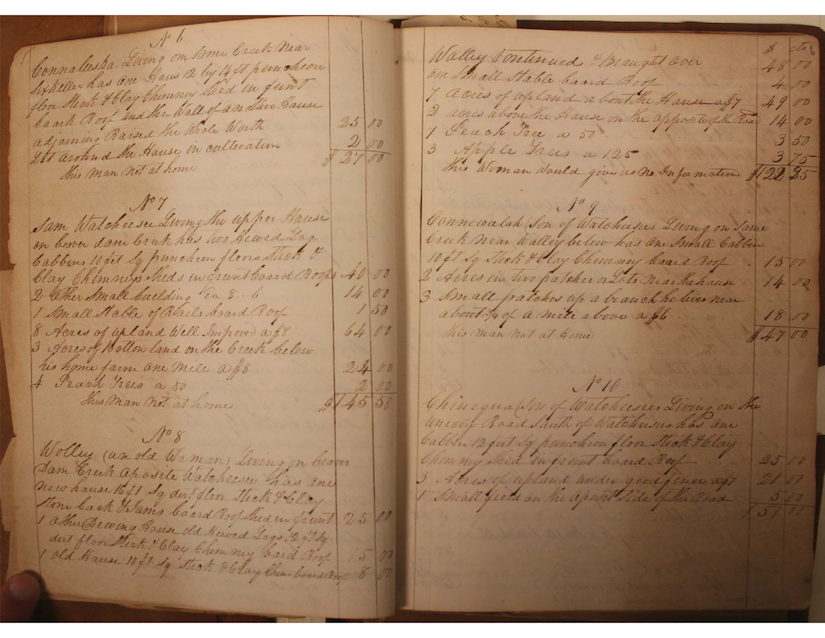 No 6
Connaleeska Living on Same Creek Near
Sixkiller has one Haus 12 by 14 ft puncheon
floor Stick & Clay Chimney Shed in frunt
baark Roof and the Wall of another House
adjoining Raised the Whole Worth 25 00
Lot around the House in cultivation 2 00
This Man Not at home $ 27 00
No 7
Sam Watcheesee Living the upper House
on bever dam Creek has two Hewed Log
Cabbens 10 ft Sq puncheon floors Stick &
Clay Chimneys Sheds in frunt board Roofs 40 00
2 Other Small building 8 6 14 00
1 Small Stable of Rails board Roof 1 50
8 Acres of upland Well Improvd a $8 64 00
3 Acres of Bottom land on the Creek below
his home farm one Mile a $8 24 00
4 Peach Trees a 50 2 00
This Man Not at home $145 50
No 8
Wolley (an old Woman) Living on bever
Dam Creek Aposite Watcheesee has one
New house 16 ft Sq dirt floor Stick & Clay
Stone back & Jams board Roof Shed in frunt 25 00
1 Other Dwing House old Hewed Logs 12 ft Sq
dirt floor Stick & Clay Chimney bard Roof 15 00
1 old House 10 ft Sq Stick & Clay Chim board Roof 8 00
$ cts
Wolley Continued & Braught over 48 00
one Small Stable board Roof 4 00
7 Acres of upland about the House a $7 49 00
2 acres above the House on the Apposite of the 14 00
1 Peach Tree a 50 50
3 Apple Trees a 125 3 75
This Woman Would give us No Information $122 25
No 9
Connewalak (Son of Watcheesee Living on Same
Creek Near Walley below has one Small Cabben
10 ft Sq Stick & Clay Chimney board Roof 15 00
2 Acres in two patches or Lots Near the house 14 00
3 Small patches up a branch he lives near
about of a mile above a $6 18 00
this man not at home $ 47 00
No 10
Chinequa (Son of Watcheesee Living on the
Unecoy Road South of Watcheesee has one
Cabben 12 ft Sq puncheon floor Stick & Clay
Chimmy Shed in frunt board Roof 25 00
3 Acres of upland under good fence a $7 21 00
1 Small field on the aposit Side of the Road 5 00
$ 51 00